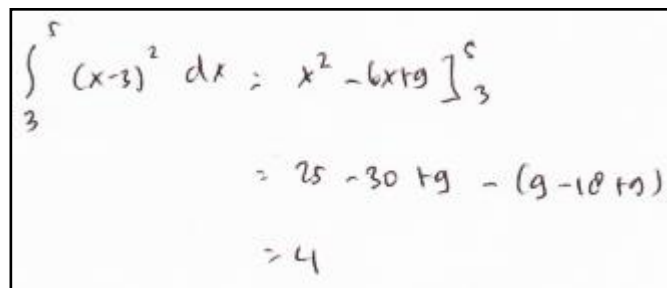 ∫₃⁵ (x-3)² dx = x² - 6x+9 ]₃⁵
= 25 - 30 +9 - (9-18+9)
= 4